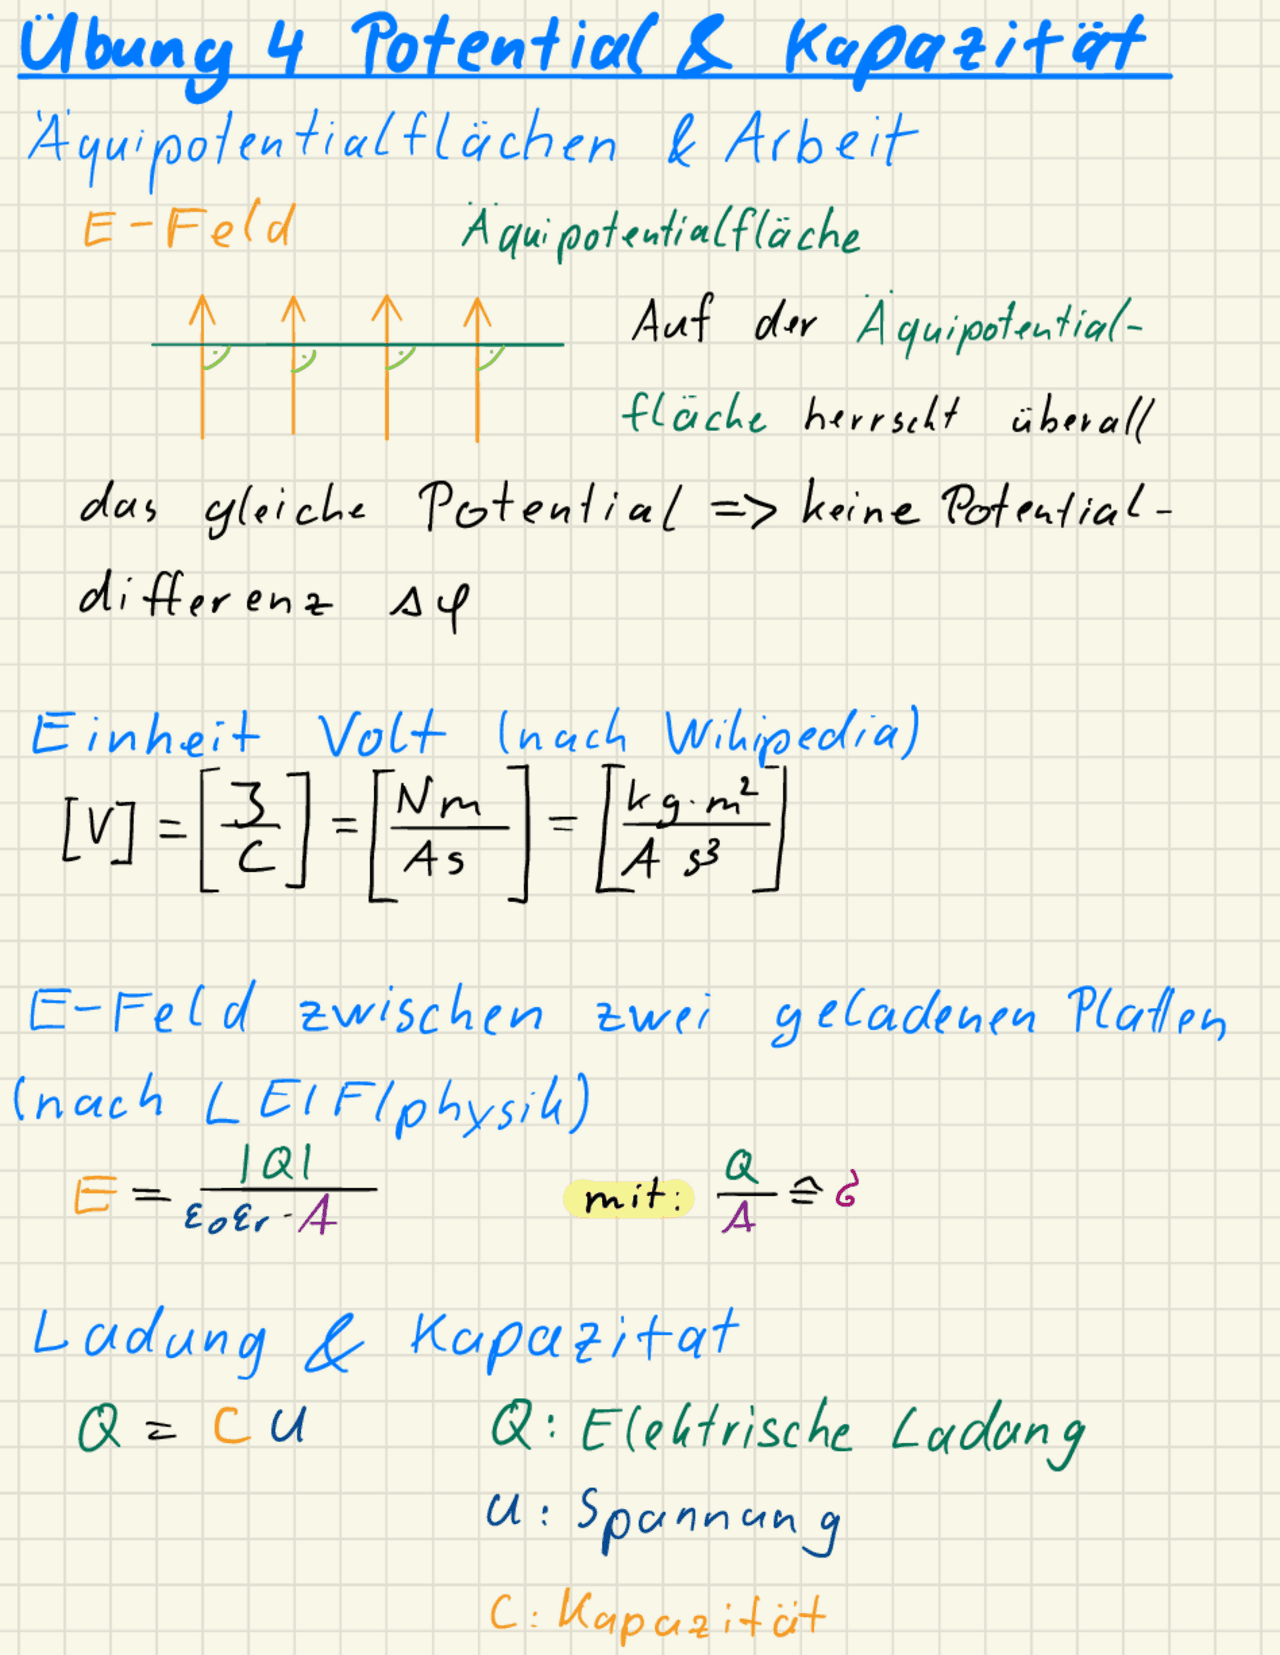 Übung 4 Potential & Kapazität
Äquipotentialflächen & Arbeit
E-Feld Äquipotentialfläche
Auf der Äquipotential-
fläche herrscht überall
das gleiche Potential => keine Potential-
differenz Δφ
Einheit Volt (nach Wikipedia)
[V] = [J/C] = [Nm/As] = [kg·m²/A s³]
E-Feld zwischen zwei geladenen Platten
(nach LEIFIphysik)
E = |Q|/ε₀εᵣ·A mit: Q/A ≙ σ
Ladung & Kapazitat
Q = C U Q: Elektrische Ladung
U: Spannung
C: Kapazität